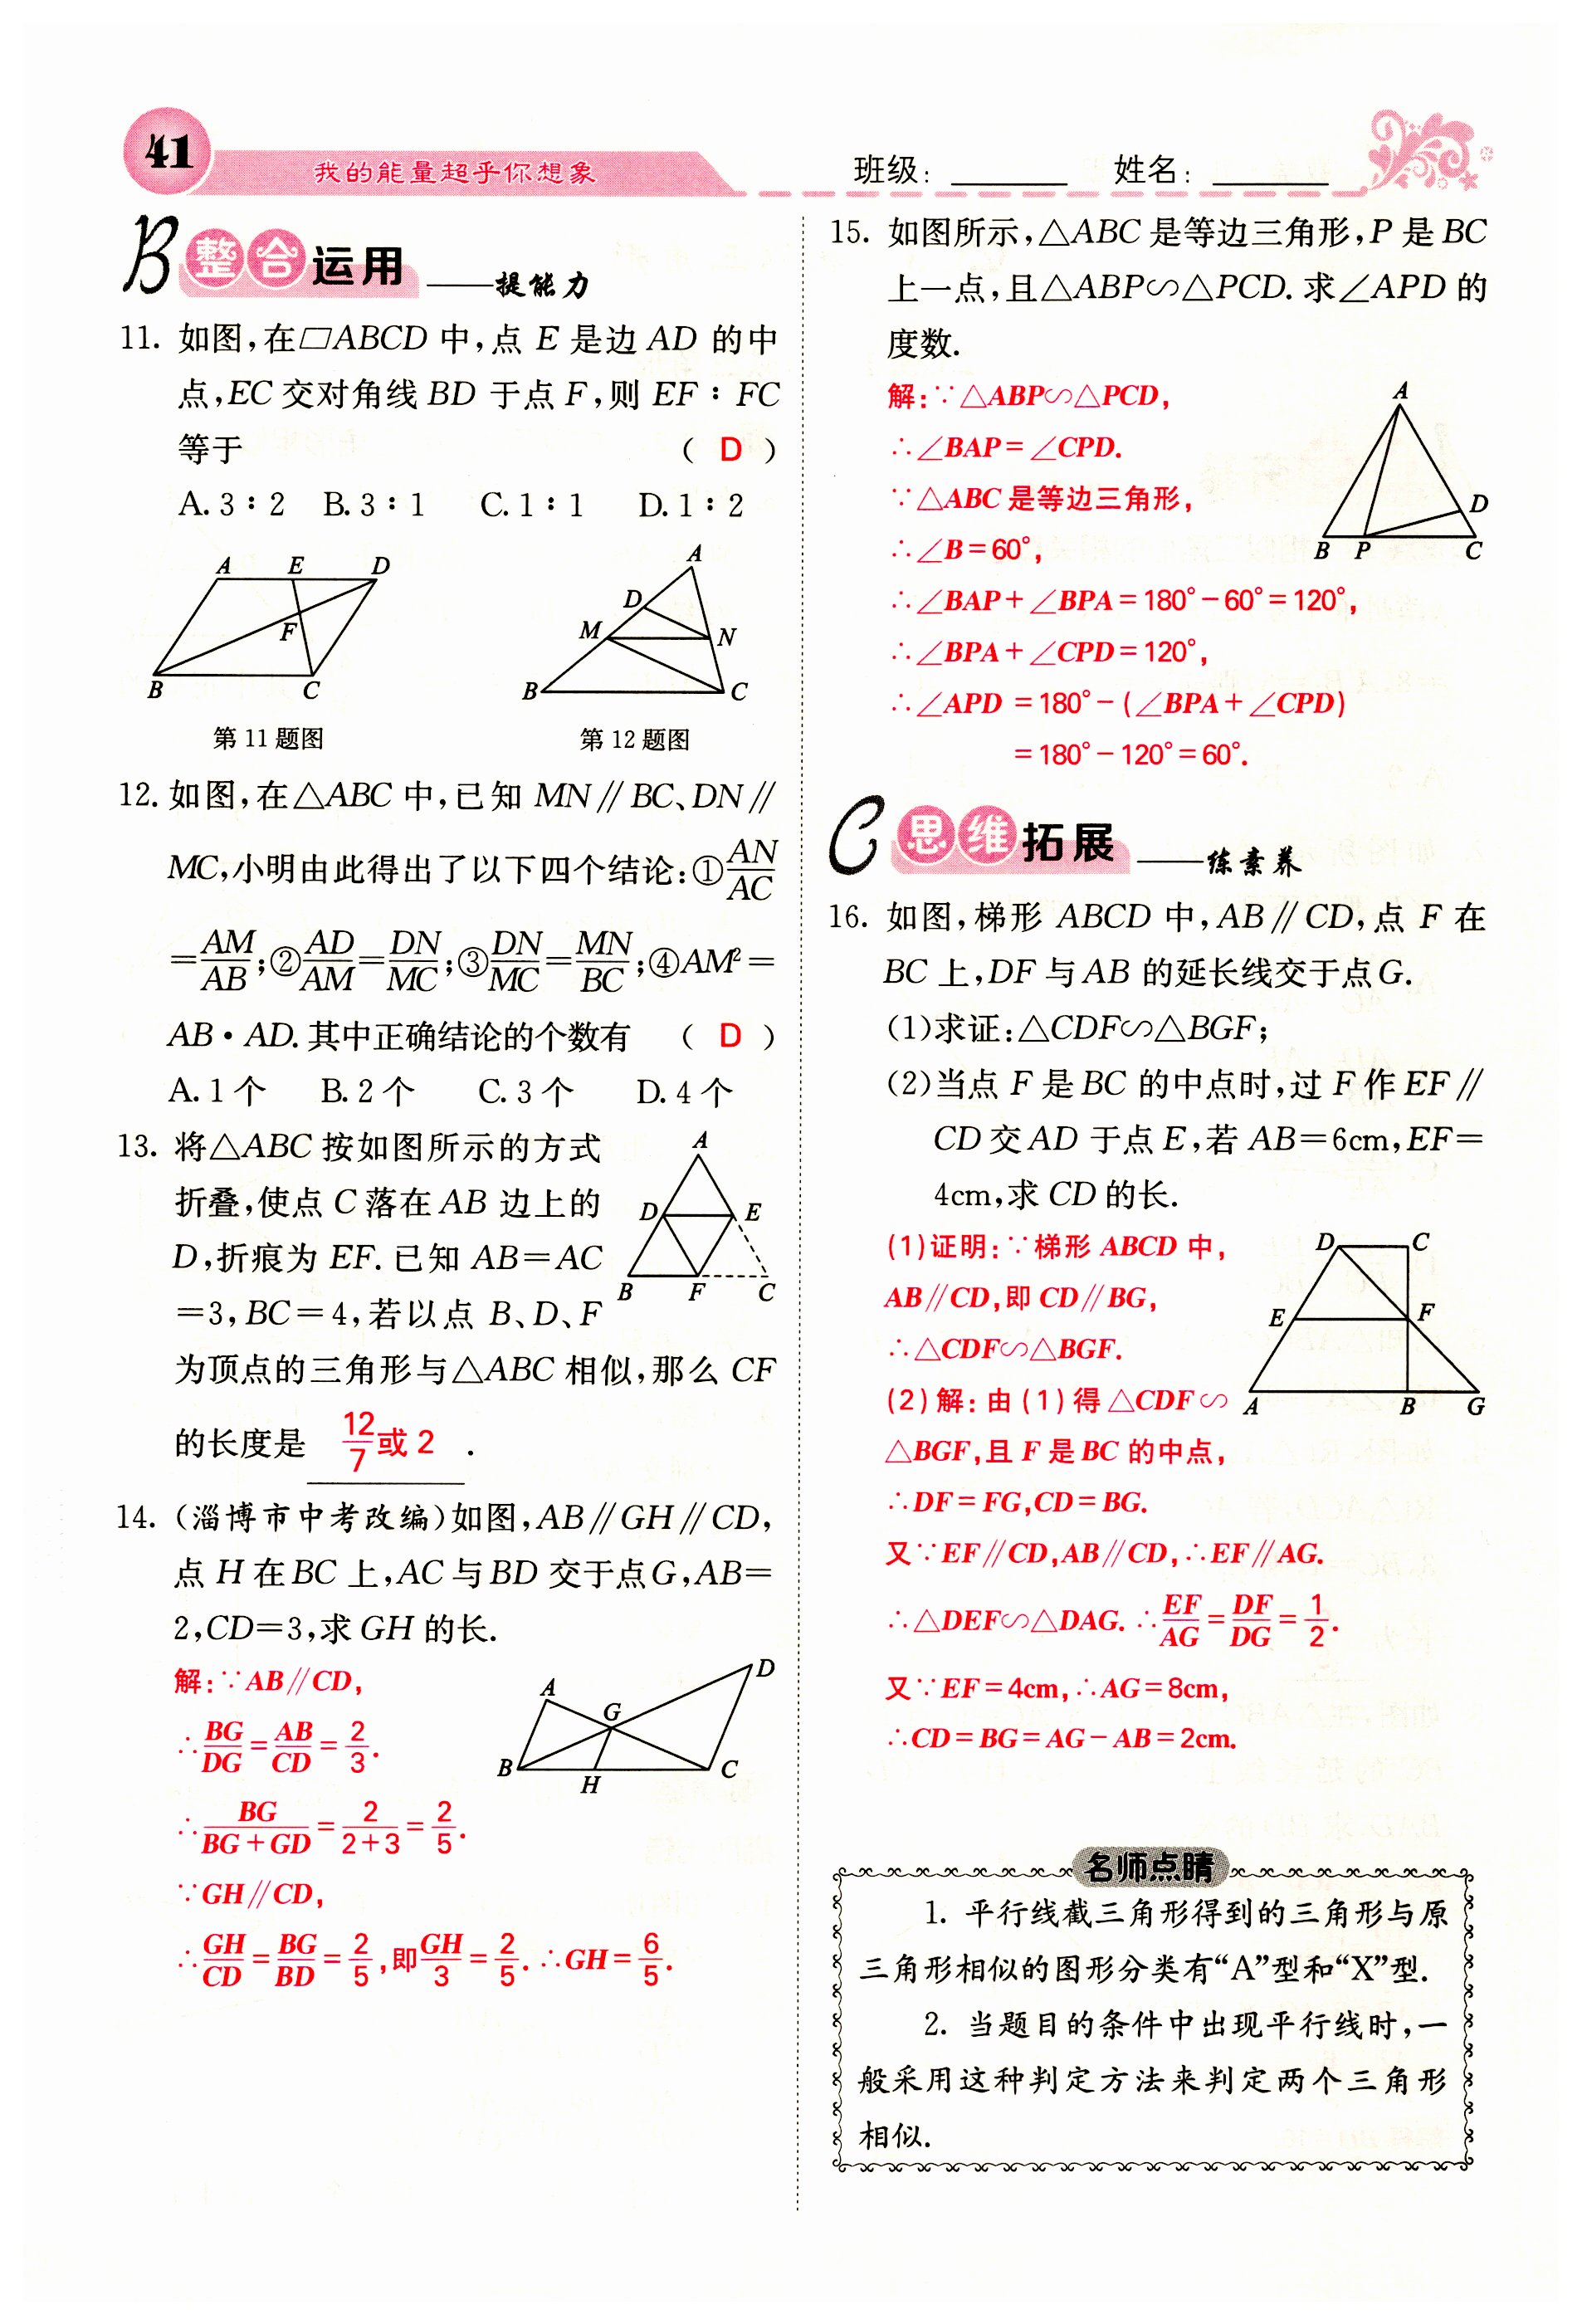 41
我的能量超乎你想象
班级：
姓名：
B 整合运用 ——提能力
11. 如图,在▱ABCD 中,点 E 是边 AD 的中
点,EC 交对角线 BD 于点 F,则 EF∶FC
等于 ( D )
A. 3∶2 B. 3∶1 C. 1∶1 D. 1∶2
A E D
F
B C
第 11 题图
A
D
M N
B C
第 12 题图
12. 如图,在△ABC 中,已知 MN∥BC、DN∥
MC,小明由此得出了以下四个结论:①AN/AC
=AM/AB;②AD/AM=DN/MC;③DN/MC=MN/BC;④AM²=
AB·AD. 其中正确结论的个数有 ( D )
A. 1 个 B. 2 个 C. 3 个 D. 4 个
13. 将△ABC 按如图所示的方式
折叠,使点 C 落在 AB 边上的
D,折痕为 EF. 已知 AB=AC
=3,BC=4,若以点 B、D、F
为顶点的三角形与△ABC 相似,那么 CF
的长度是 12/7或 2 .
A
D E
B F C
14. (淄博市中考改编)如图,AB∥GH∥CD,
点 H 在 BC 上,AC 与 BD 交于点 G,AB=
2,CD=3,求 GH 的长.
解:∵AB∥CD,
∴BG/DG=AB/CD=2/3.
∴BG/(BG+GD)=2/(2+3)=2/5.
∵GH∥CD,
∴GH/CD=BG/BD=2/5,即GH/3=2/5. ∴GH=6/5.
D
A
G
B H C
15. 如图所示,△ABC 是等边三角形,P 是 BC
上一点,且△ABP∽△PCD. 求∠APD 的
度数.
解:∵△ABP∽△PCD,
∴∠BAP=∠CPD.
∵△ABC 是等边三角形,
∴∠B=60°,
∴∠BAP+∠BPA=180°-60°=120°,
∴∠BPA+∠CPD=120°,
∴∠APD =180°-(∠BPA+∠CPD)
=180°-120°=60°.
A
D
B P C
C 思维拓展 ——练素养
16. 如图,梯形 ABCD 中,AB∥CD,点 F 在
BC 上,DF 与 AB 的延长线交于点 G.
(1)求证:△CDF∽△BGF;
(2)当点 F 是 BC 的中点时,过 F 作 EF∥
CD 交 AD 于点 E,若 AB=6cm,EF=
4cm,求 CD 的长.
(1)证明:∵梯形 ABCD 中,
AB∥CD,即 CD∥BG,
∴△CDF∽△BGF.
(2)解:由(1)得△CDF∽
△BGF,且 F 是 BC 的中点,
∴DF=FG,CD=BG.
又∵EF∥CD,AB∥CD,∴EF∥AG.
∴△DEF∽△DAG. ∴EF/AG=DF/DG=1/2.
又∵EF=4cm,∴AG=8cm,
∴CD=BG=AG-AB=2cm.
D C
E F
A B G
名师点睛
1. 平行线截三角形得到的三角形与原
三角形相似的图形分类有“A”型和“X”型.
2. 当题目的条件中出现平行线时,一
般采用这种判定方法来判定两个三角形
相似.